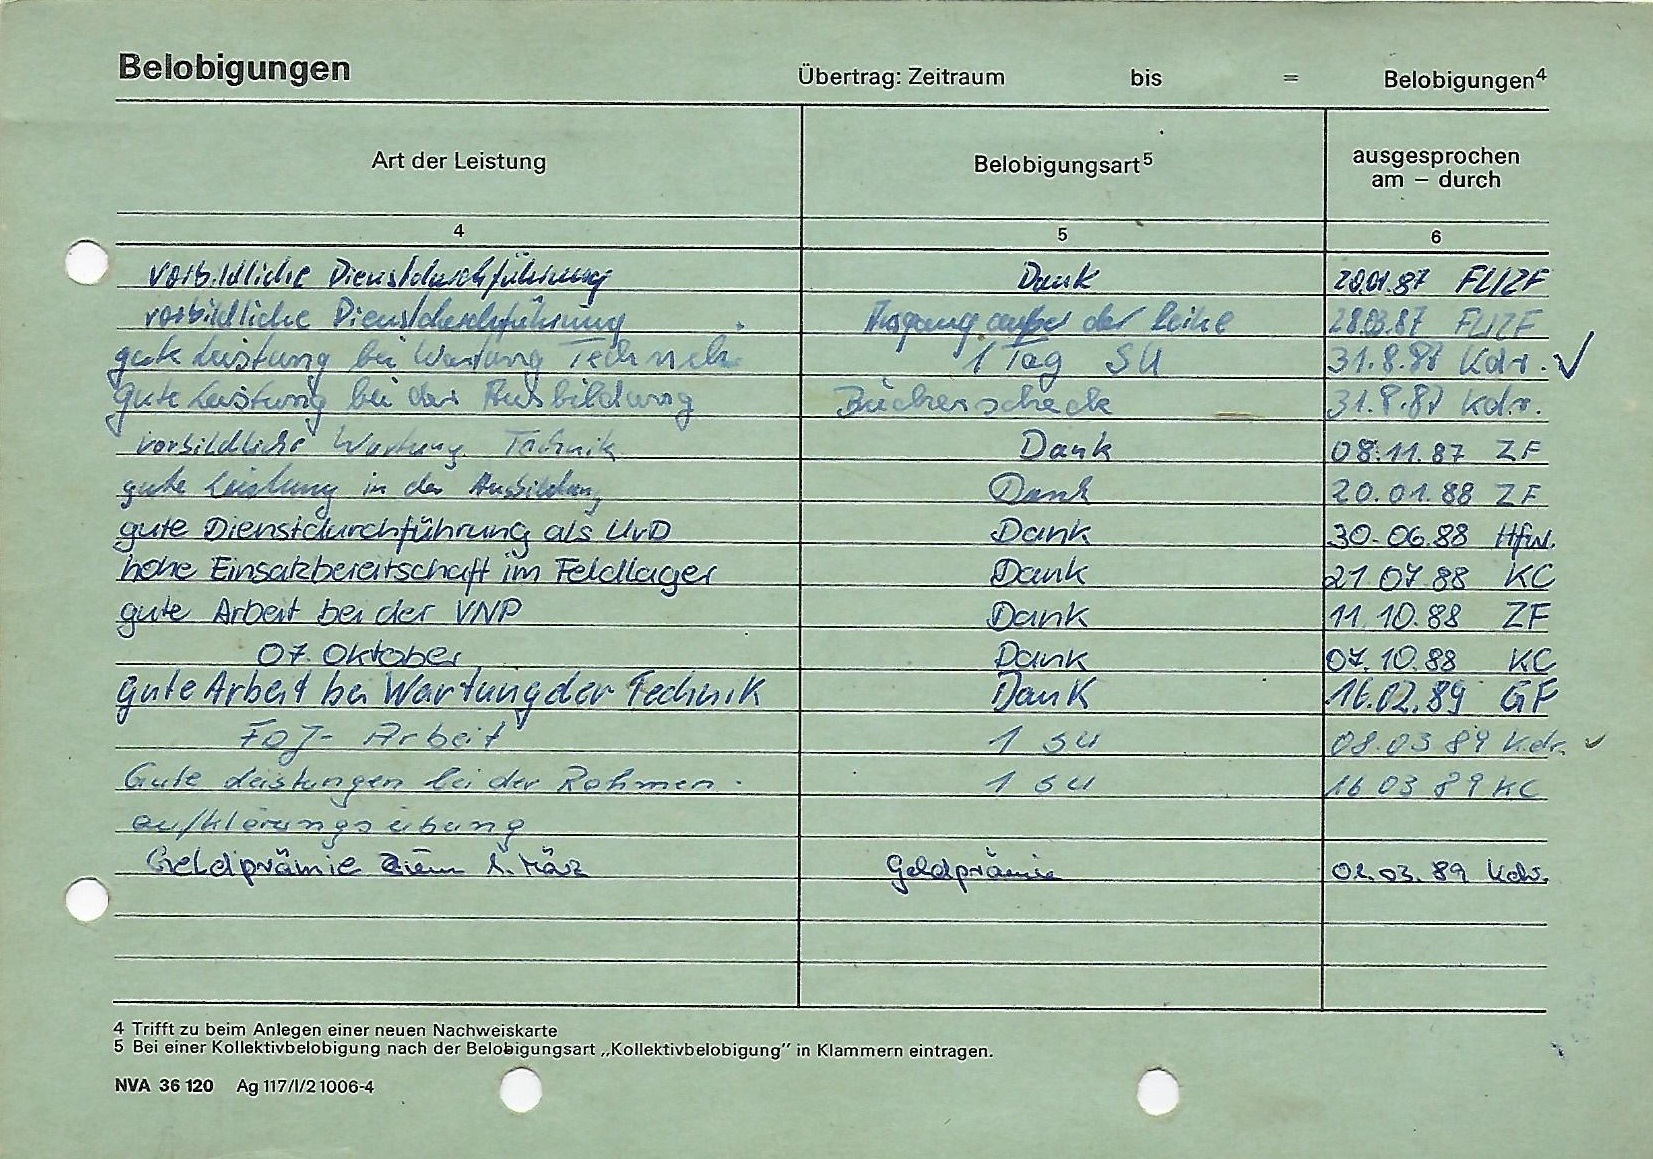 Belobigungen Übertrag: Zeitraum bis = Belobigungen⁴
Art der Leistung Belobigungsart⁵ ausgesprochen am – durch
4 5 6
vorbildliche Dienstdurchführung Dank 20.01.87 FLIZF
vorbildliche Dienstdurchführung Ausgang außer der Reihe 28.03.87 FLIZF
gute Leistung bei Wartung Technik 1 Tag SU 31.8.87 Kdr. ✓
gute Leistung bei der Ausbildung Bücherscheck 31.8.87 Kdr.
vorbildliche Wartung Technik Dank 08.11.87 ZF
gute Leistung in der Ausbildung Dank 20.01.88 ZF
gute Dienstdurchführung als UvD Dank 30.06.88 Hfw.
hohe Einsatzbereitschaft im Feldlager Dank 21 07 88 KC
gute Arbeit bei der VNP Dank 11.10.88 ZF
07. Oktober Dank 07.10.88 KC
gute Arbeit bei Wartung der Technik Dank 16.02.89 GF
FDJ- Arbeit 1 SU 08.03 89 Kdr. ✓
Gute Leistungen bei der Rahmen- 1 SU 16 03 89 KC
aufklärungsübung
Geldprämie zum 1. März Geldprämie 01.03.89 Kdr.
4 Trifft zu beim Anlegen einer neuen Nachweiskarte
5 Bei einer Kollektivbelobigung nach der Belobigungsart „Kollektivbelobigung" in Klammern eintragen.
NVA 36 120 Ag 117/I/2 1006-4